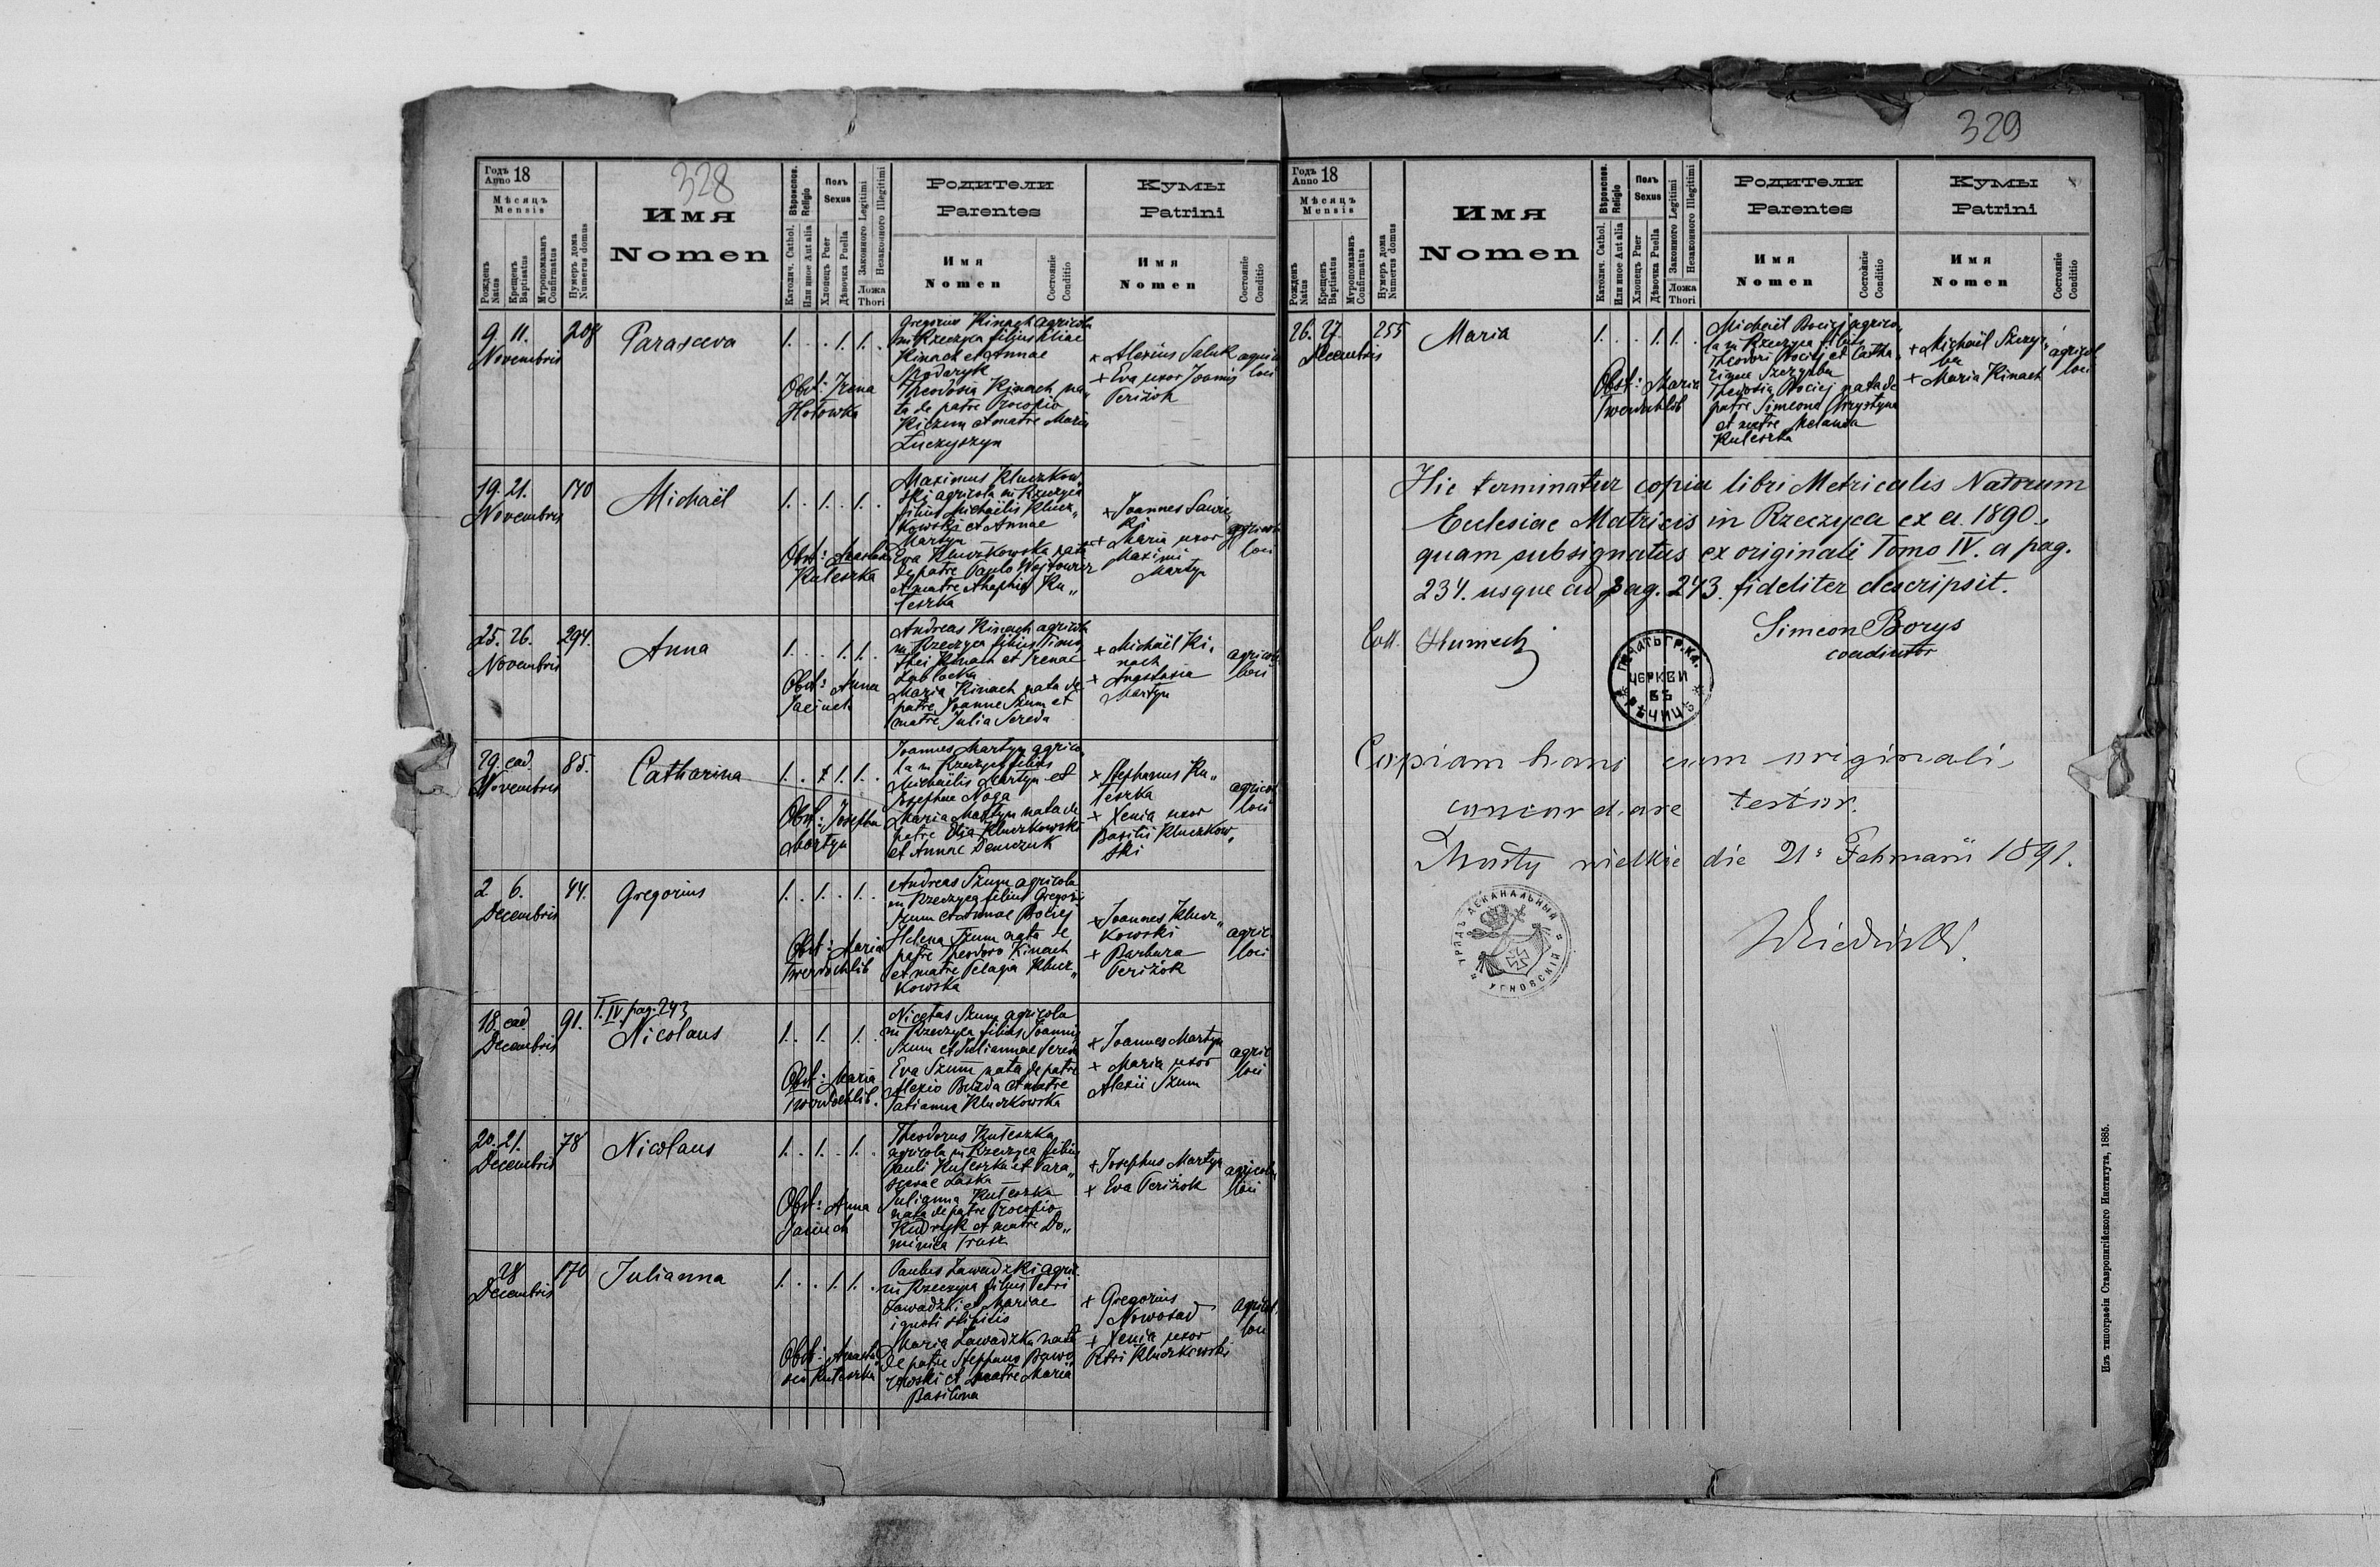 328
Годъ 18
Anno
Мѣсяцъ
Mensis
Рожденъ
Natus
Крещенъ
Baptisatus
Мvропомазанъ
Confirmatus
Нумеръ дома
Numerus domus
Имя
Nomen
Вѣроисповѣд.
Religio
Католич. Cathol.
Или иное Aut alia
Полъ
Sexus
Хлопецъ Puer
Дѣвочка Puella
Законного Legitimi
Незаконного Illegitimi
Ложа
Thori
Родители
Parentes
Имя
Nomen
Состоянiе
Conditio
Кумы
Patrini
Имя
Nomen
Состоянiе
Conditio
9. 11.
Novembris
208
Parasceva
1. . . 1. 1. .
Obst: Irena
Hołowka
Gregorius Kinach agricola
in Rzeczyca filius Eliae
Kinach et Annae
Theodosia Kinach na„
ta de patre Procopio
Kiczun et matre Maria
Łuczyszyn
+ Alexius Saluk
+ Eva uxor Joannis
Periżok
agric.
loci
19. 21.
Novembris
170
Michaël
1. . 1. . 1. .
Obst:
Kuleszka
Maximus Kluczkow„
ski agricola in Rzeczyca
filius Michaelis Klucz„
kowski et Annae
Martyn
Eva Kluczkowska nata
de patre Paulo Wojtowicz
et matre Ku„
leszka
+ Joannes
+ Maria uxor
Maximi
Martyn
agricolae
loci
25. 26.
Novembris
294.
Anna
1. . . 1. 1. .
Obst: Anna
Jacinch
Andreas Kinach agricola
in Rzeczyca filius Timo„
thei Kinach et Irenae
Maria Kinach nata de
patre Joanne Szum et
matre Julia Sereda
+ Michaël Ki„
nach
+ Anastasia
Martyn
agricolae
loci
29. ead.
Novembris
85.
Catharina
1. . 1. 1. .
Obst: Josepha
Martyn
Joannes Martyn agrico„
la in Rzeczyca filius
Michaëlis Martyn et
Josephae Noga
Maria Martyn nata de
patre Elia Kluczkowski
et Annae Demczuk
+ Stephanus Ku„
leszka
+ Xenia uxor
Basilii Kluczkow„
ski
agricol.
loci
2. 6.
Decembris
44.
Gregorius
1. . 1. . 1. .
Obst: Maria
Twerdochlib
Andreas Szum agricola
in Rzeczyca filius Gregorii
Szum et Annae Bociej
Helena Szum nata de
patre Theodoro Kinach
et matre Pelagia Klucz„
kowska
+ Joannes Klucz„
kowski
+ Barbara
Periżok
agric.
loci
18. ead.
Decembris
91.
T. IV pag. 243
Nicolaus
1. . 1. . 1. .
Obst: Maria
Twerdochlib.
Nicetas Szum agricola
in Rzeczyca filius Joannis
Szum et Juliannae Sereda
Eva Szum nata de patre
Alexio Buzda et matre
Tatianna Kluczkowska
+ Joannes Martyn
+ Maria uxor
Alexii Szum
agric.
loci
20. 21.
Decembris
78
Nicolaus
1. . 1. . 1. .
Obst: Anna
Jacinch
Theodorus Kuleszka
agricola in Rzeczyca filius
Pauli Kuleszka et Para„
scevae Laska
Julianna Kuleszka
nata de patre Procopio
Kudryk et matre Do„
minica Trusz
+ Josephus Martyn
+ Eva Periżok
agricolae
loci
28
Decembris
170
Julianna
1. . . 1. 1. .
Obst: Anasta„
sia Kuleszka
Paulus Zawadzki agric.
in Rzeczyca filius Petri
Zawadzki et Mariae
ignoti stipitis
Maria Zawadzka nata
de patre Stephano
et matre Maria
+ Gregorius
Nowosad
+ Xenia uxor
Petri Kluczkowski
agricol.
loci
329
Годъ 18
Anno
Мѣсяцъ
Mensis
Рожденъ
Natus
Крещенъ
Baptisatus
Мvропомазанъ
Confirmatus
Нумеръ дома
Numerus domus
Имя
Nomen
Вѣроисповѣд.
Religio
Католич. Cathol.
Или иное Aut alia
Полъ
Sexus
Хлопецъ Puer
Дѣвочка Puella
Законного Legitimi
Незаконного Illegitimi
Ложа
Thori
Родители
Parentes
Имя
Nomen
Состоянiе
Conditio
Кумы
Patrini
Имя
Nomen
Состоянiе
Conditio
26. 27.
Decembris
255
Maria
1. . . 1. 1. .
Obst: Maria
Twerdochlib
Michaël Bociej agrico„
la in Rzeczyca filius
Theodori Bociej et Catha„
rinae Szczyrba
Theodosia Bociej nata de
patre Simeone Chrystyna
et matre Melania
Kuleszka
+ Michaël Szczyr„
ba
+ Maria Kinach
agricol.
loci
Hic terminatur copia libri Metricalis Natorum
Ecclesiae Matricis in Rzeczyca ex a. 1890.,
quam subsignatus ex originali Tomo IV. a pag.
234. usque ad pag. 243. fideliter descripsit.
Simeon Borys
coadiutor
Coll.
ПЕЧАТЬ ГР. КА.
ЦЕРКВИ
ВЪ
РѢЧИЦѢ
Copiam hanc cum originali
concordare testor.
Mosty wielkie die 21: Februarii 1891.
УРЯДЪ ДЕКАНАЛЬНЫЙ
УГНОВСКІЙ
Изъ типографіи Ставропигійского Института, 1885.